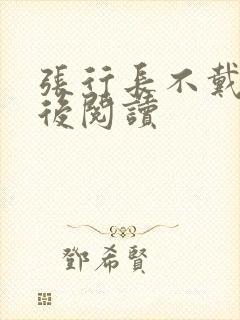 張行長不戴
後閱讀
鄧希賢